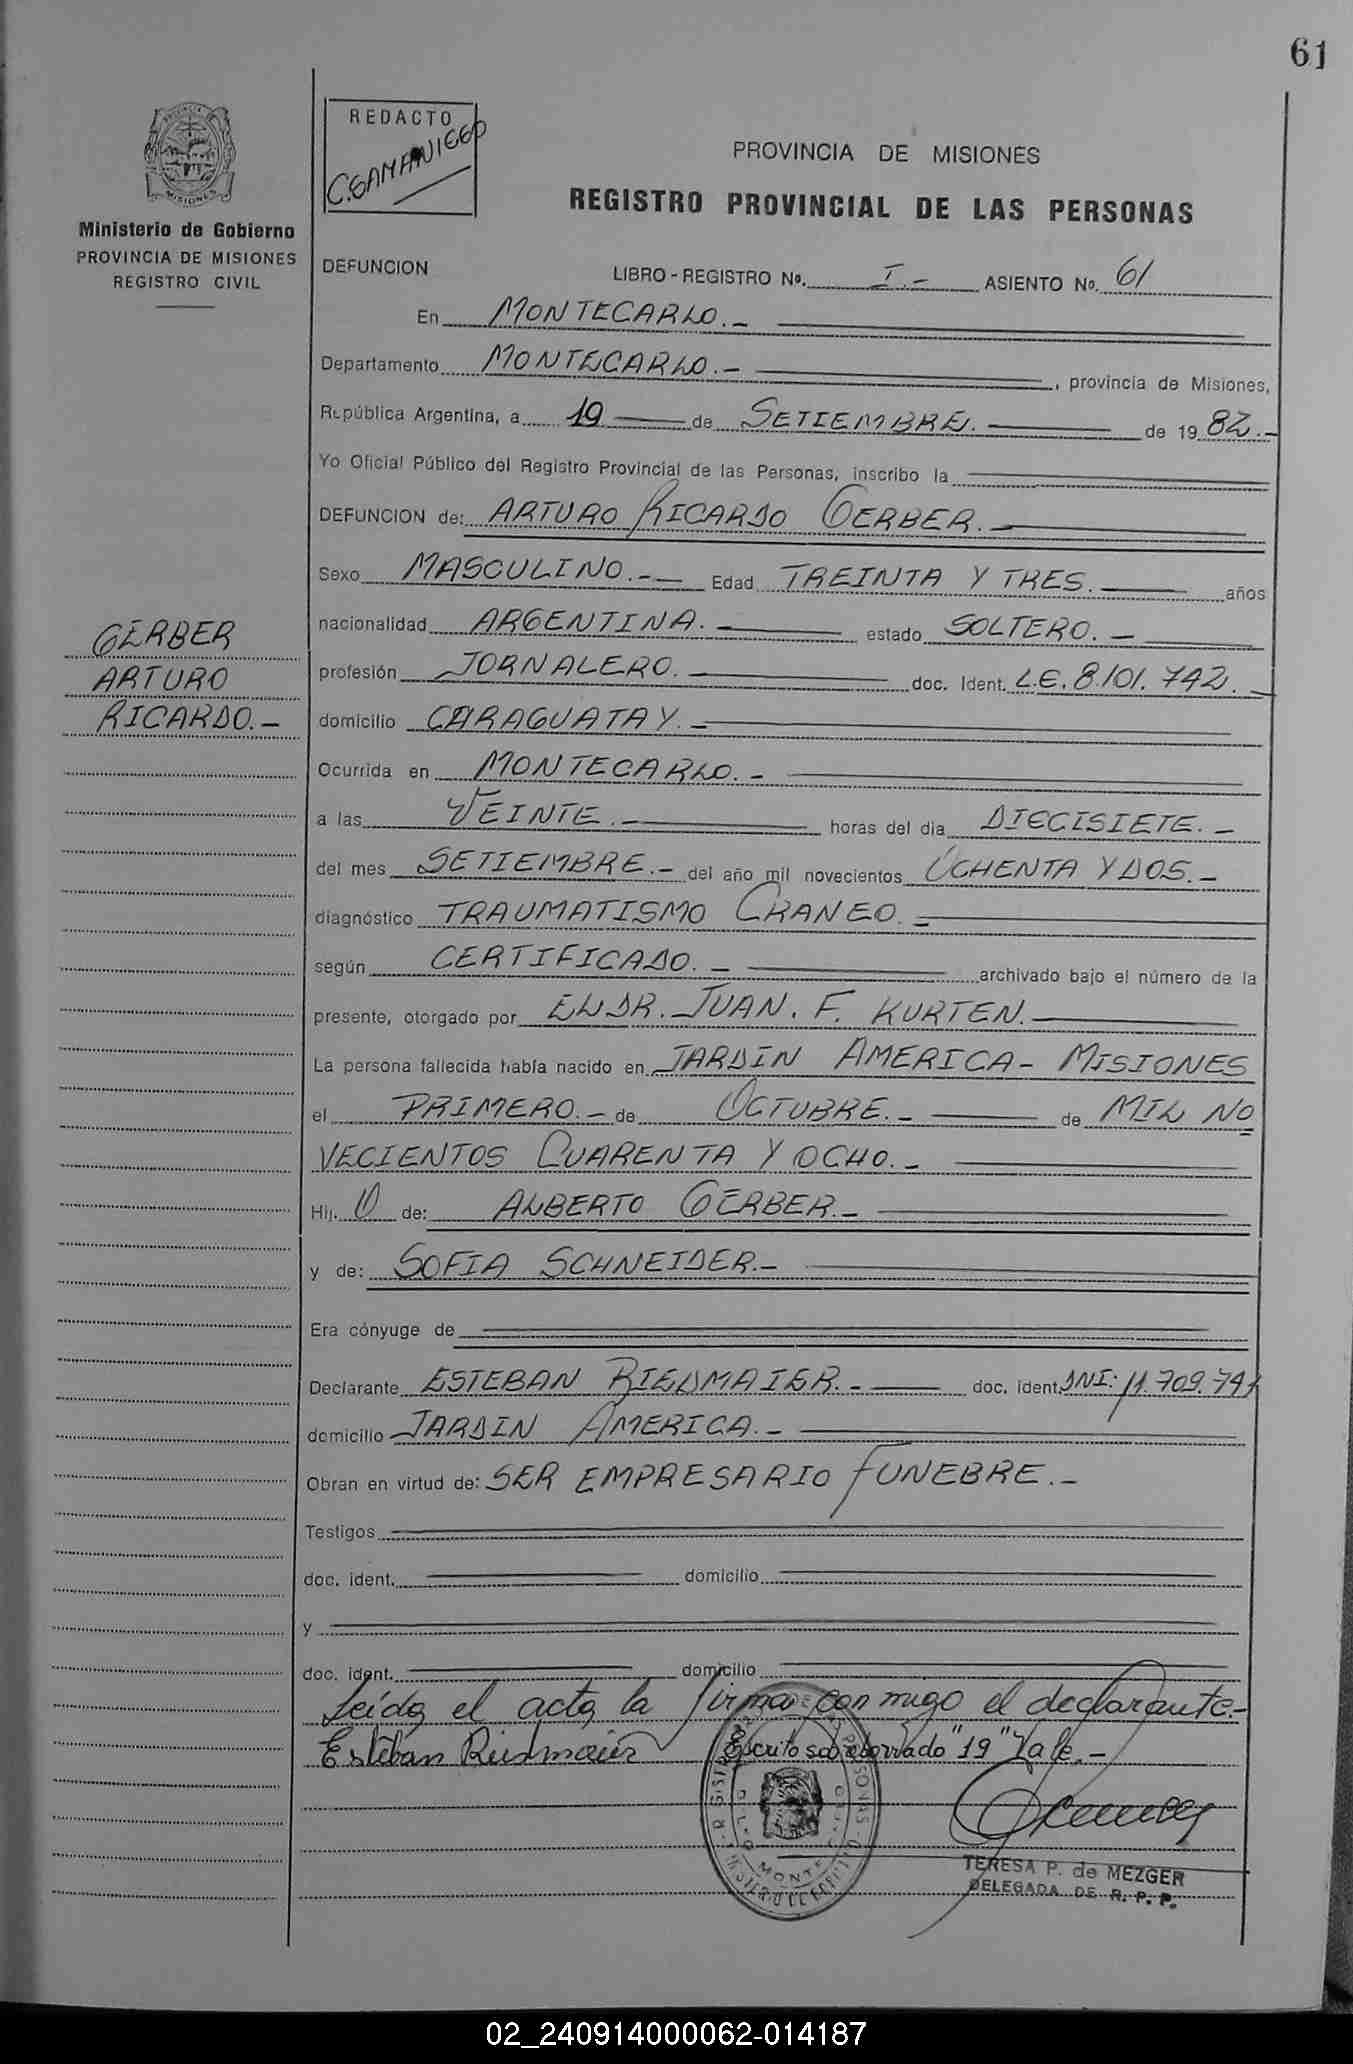 61
REDACTO
PROVINCIA DE MISIONES
REGISTRO PROVINCIAL DE LAS PERSONAS
Ministerio de Gobierno
PROVINCIA DE MISIONES
REGISTRO CIVIL
DEFUNCION LIBRO - REGISTRO No. I.- ASIENTO No. 61
En MONTECARLO.-
Departamento MONTECARLO.- , provincia de Misiones,
República Argentina, a 19 de SETIEMBRE. de 19 82.-
Yo Oficial Público del Registro Provincial de las Personas, inscribo la
DEFUNCION de: ARTURO RICARDO GERBER.
Sexo MASCULINO.- Edad TREINTA Y TRES. años
nacionalidad ARGENTINA. estado SOLTERO.-
GERBER
ARTURO
RICARDO.-
profesión JORNALERO. doc. Ident. L.E. 8.101.742.
domicilio CARAGUATAY.-
Ocurrida en MONTECARLO.-
a las VEINTE.- horas del dia DIECISIETE.-
del mes SETIEMBRE.- del año mil novecientos OCHENTA Y DOS.-
diagnóstico TRAUMATISMO CRANEO.-
según CERTIFICADO.- archivado bajo el número de la
presente, otorgado por EL DR. JUAN. F. KURTEN.
La persona fallecida había nacido en JARDIN AMERICA - MISIONES
el PRIMERO.- de OCTUBRE.- de MIL NO
VECIENTOS CUARENTA Y OCHO.-
Hij. O de: ALBERTO GERBER.-
y de: SOFIA SCHNEIDER.-
Era cónyuge de
Declarante ESTEBAN RIEDMAIER.- doc. ident. DNI: 11.709.741
domicilio JARDIN AMERICA.-
Obran en virtud de: SER EMPRESARIO FUNEBRE.-
Testigos
doc. ident. domicilio
y
doc. ident. domicilio
Leída el acta, la firma con migo el declarante.-
Esteban Riedmaier Escrito sob eborrado "19" Vale.-
TERESA P. de MEZGER
DELEGADA DE R. P. P.
02_240914000062-014187